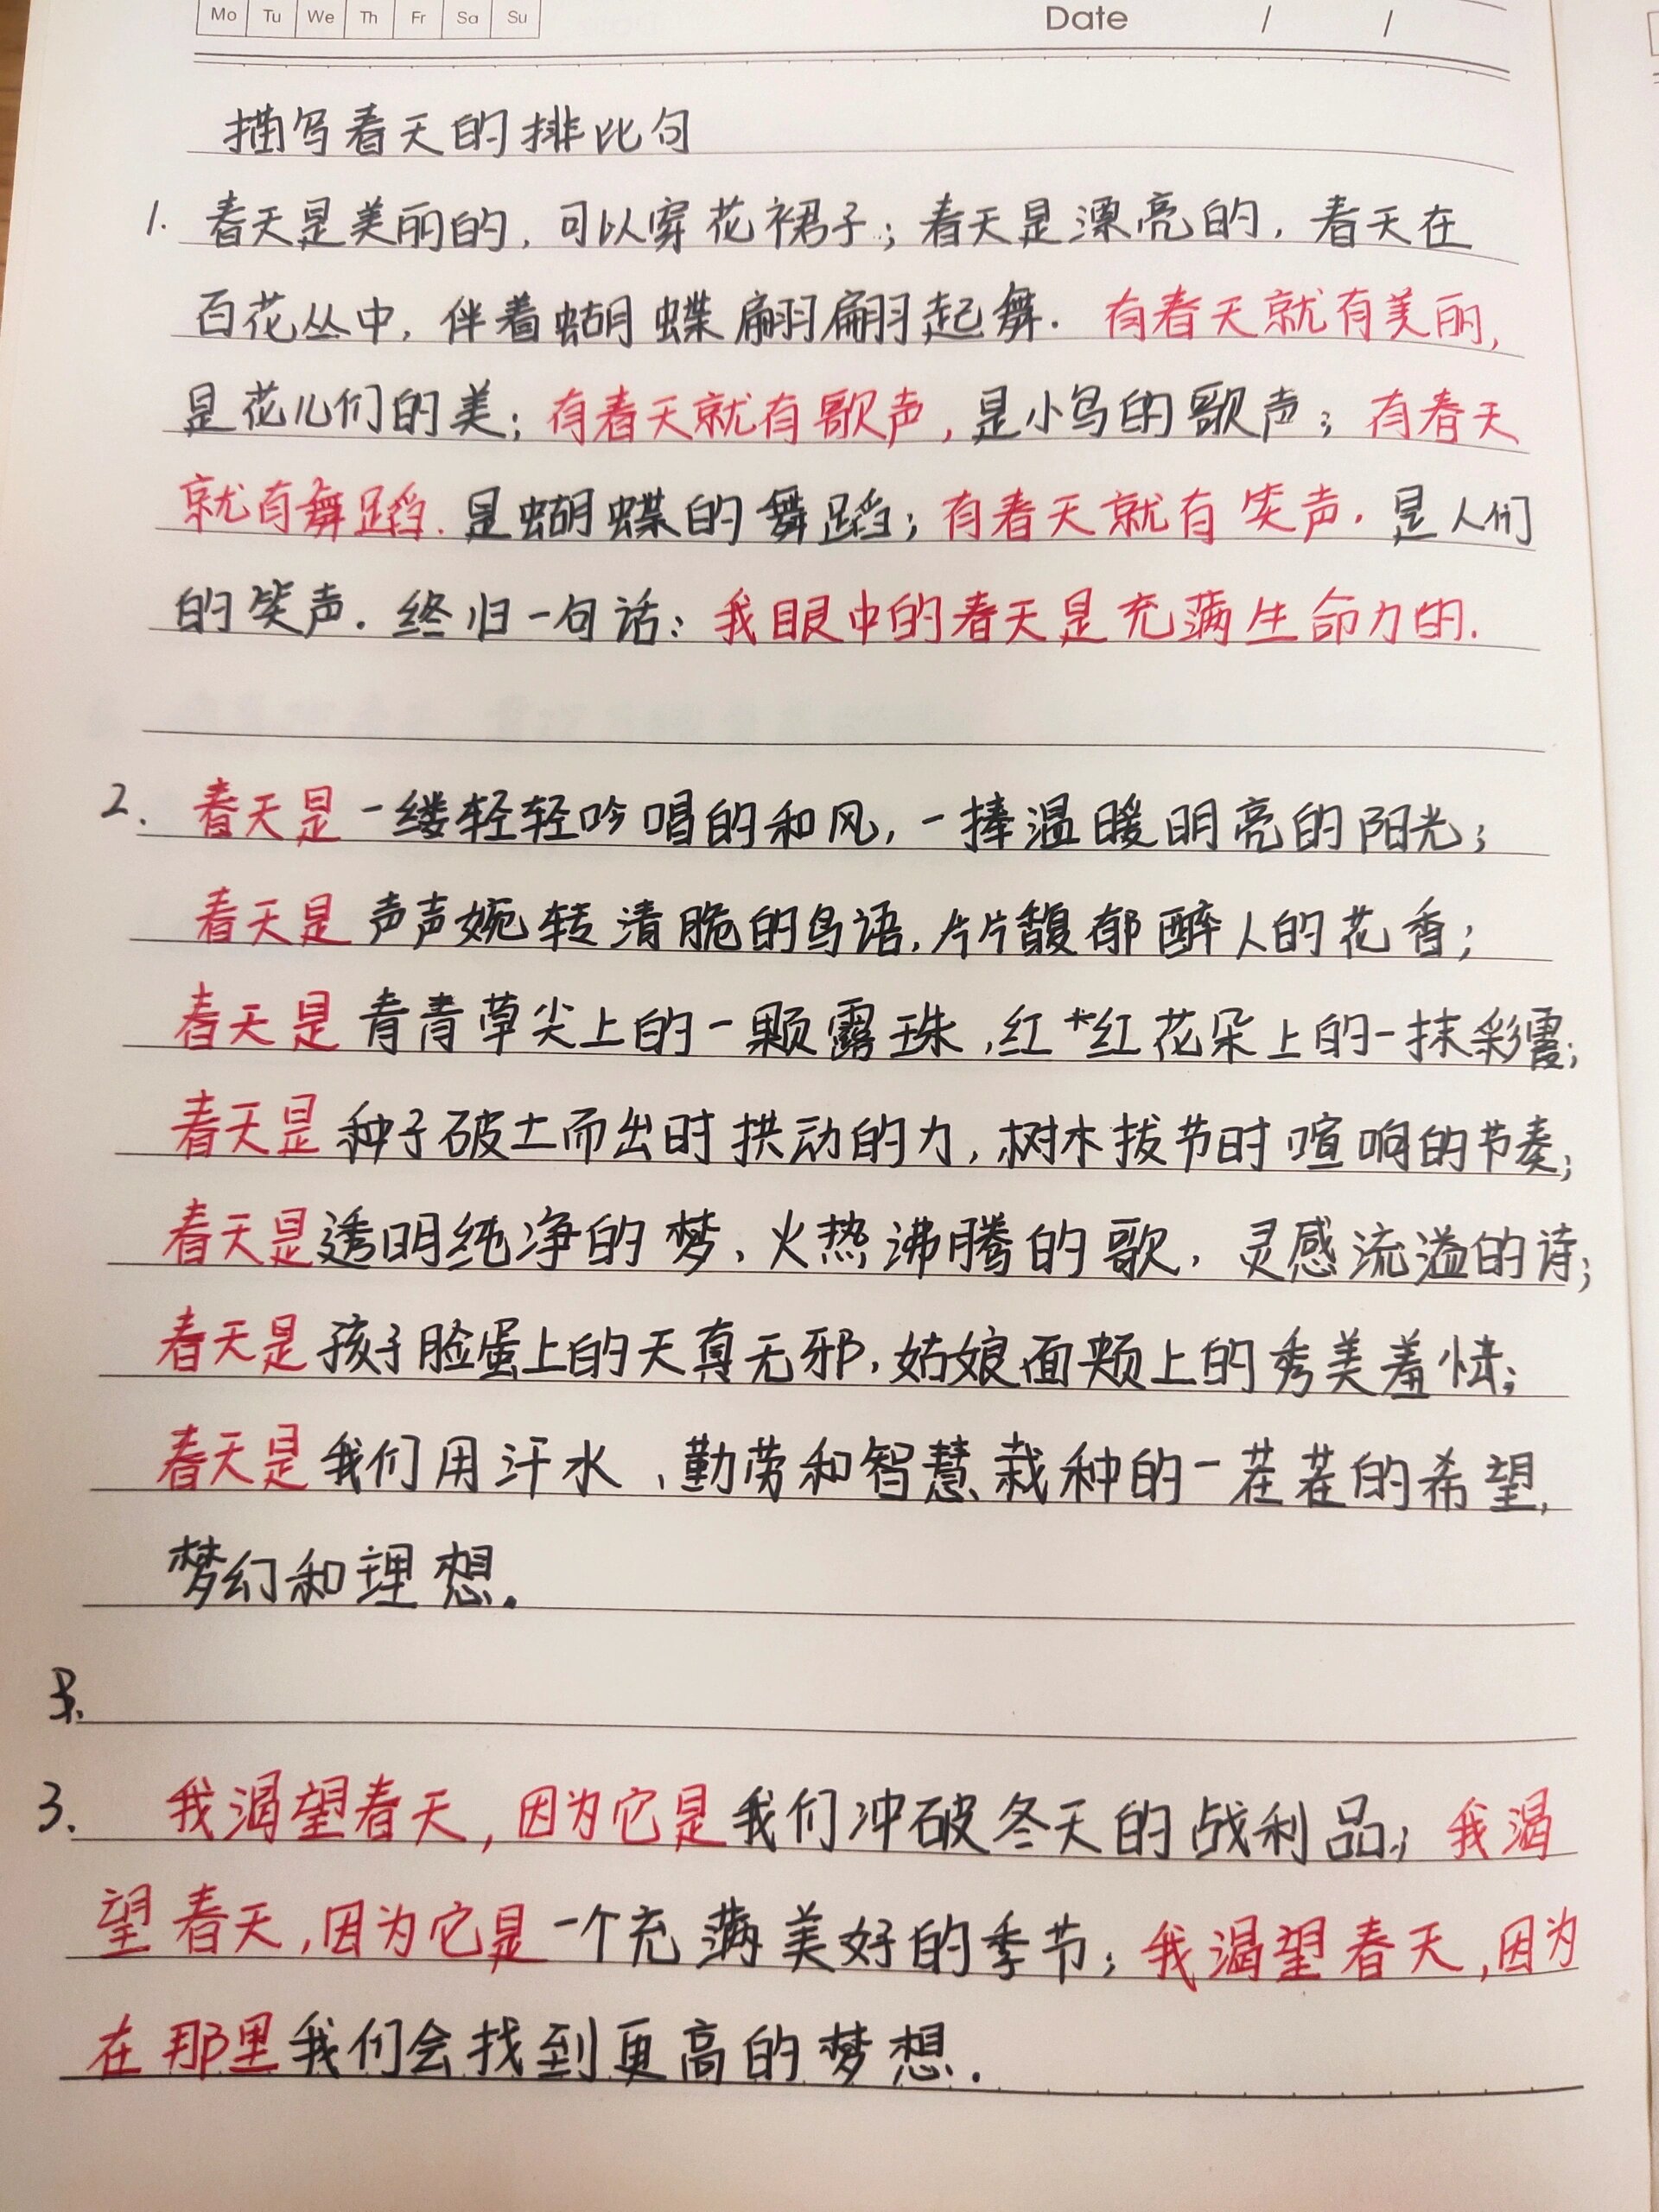 Mo Tu We Th Fr Sa Su Date / /
描写春天的排比句
1. 春天是美丽的，可以穿花裙子；春天是漂亮的，春天在
百花丛中，伴着蝴蝶翩翩起舞．有春天就有美丽，
是花儿们的美；有春天就有歌声，是小鸟的歌声；有春天
就有舞蹈．是蝴蝶的舞蹈；有春天就有笑声．是人们
的笑声．终归一句话：我眼中的春天是充满生命力的．
2. 春天是一缕轻轻吟唱的和风，一捧温暖明亮的阳光；
春天是声声婉转清脆的鸟语，片片馥郁醉人的花香；
春天是青青草尖上的一颗露珠，红*红花朵上的一抹彩霞；
春天是种子破土而出时拱动的力，树木拔节时喧响的节奏；
春天是透明纯净的梦、火热沸腾的歌，灵感流溢的诗；
春天是孩子脸蛋上的天真无邪，姑娘面颊上的秀美羞怯；
春天是我们用汗水、勤劳和智慧栽种的一茬茬的希望，
梦幻和理想．
3. 我渴望春天，因为它是我们冲破冬天的战利品；我渴
望春天，因为它是一个充满美好的季节；我渴望春天，因为
在那里我们会找到更高的梦想．